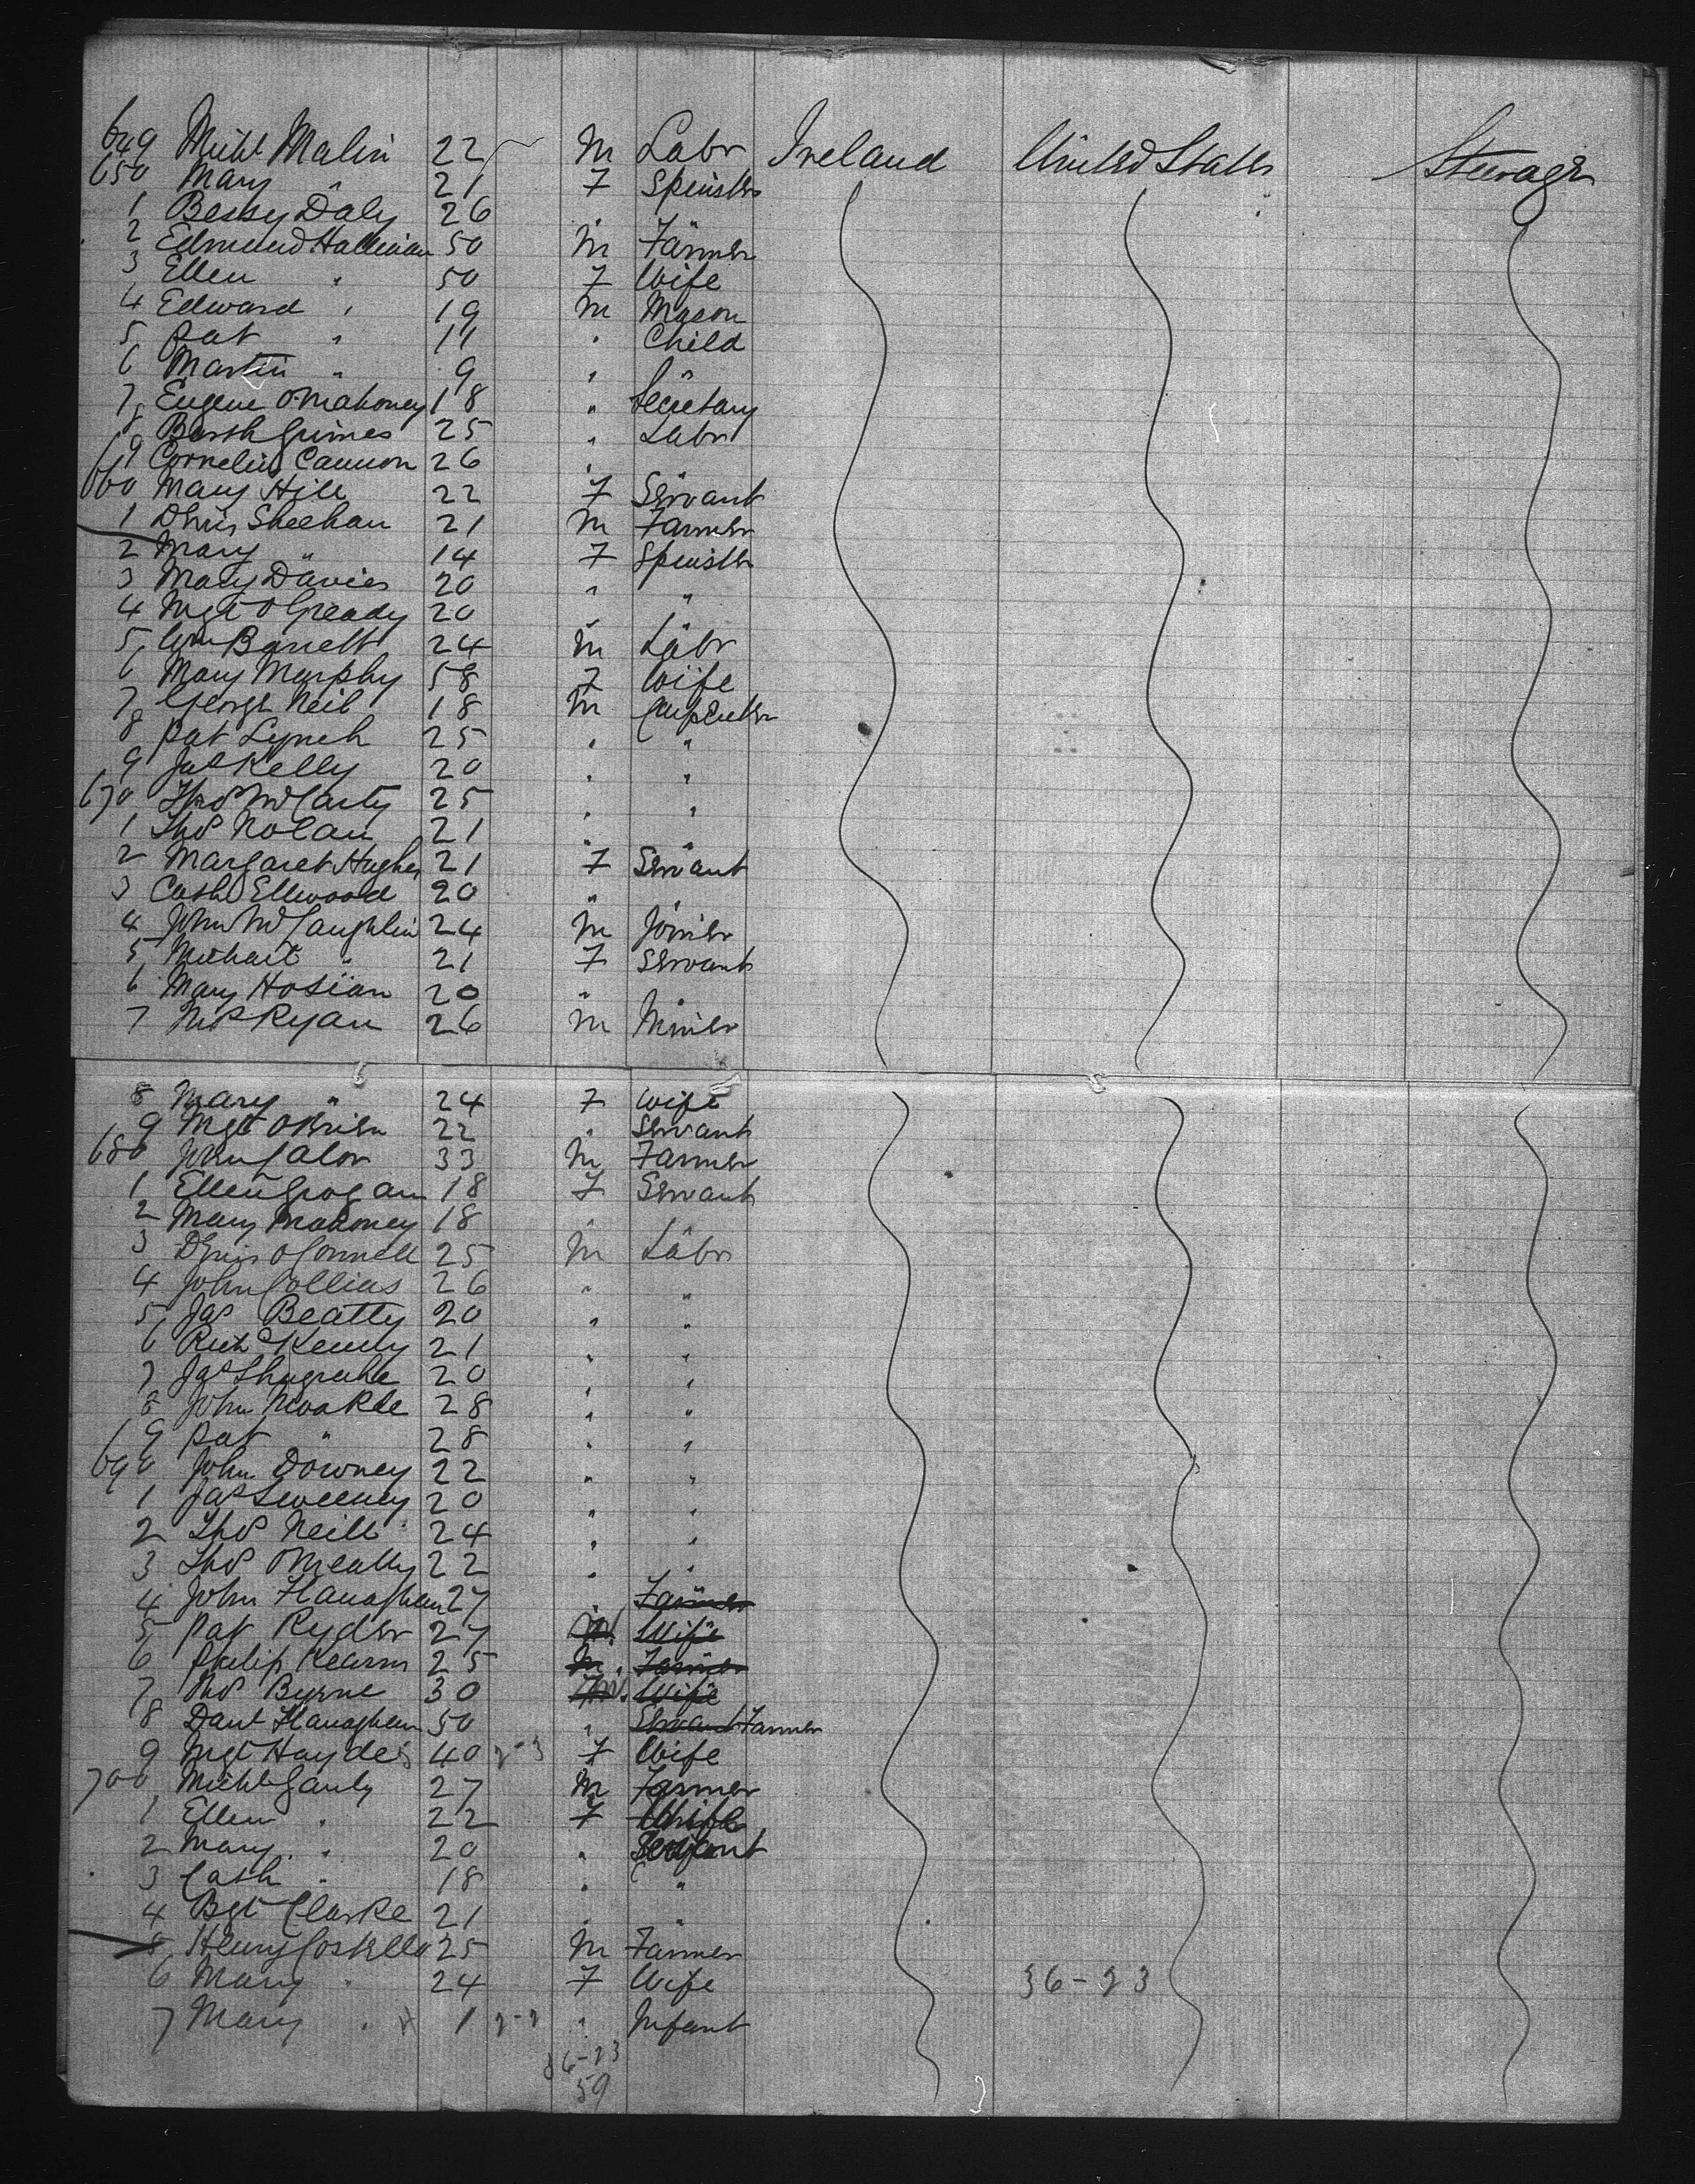 649 Michl Malin 22 M Labr Ireland United States Steerage
650 Mary " 21 F Spinster
1 Bessy Daly 26 " "
2 Edmund Hallinan 50 M Farmer
3 Ellen " 50 F Wife
4 Edward " 19 M Mason
5 Pat " 11 " Child
6 Martin " 9 " "
7 Eugene O'Mahoney 18 " Secretary
8 Barth Grimes 25 " Labr
9 Cornelius Cannon 26 " "
660 Mary Hill 22 F Servant
1 Dennis Sheehan 21 M Farmer
2 Mary " 14 F Spinster
3 Mary Davies 20 " "
4 Mgt O'Gready 20 " "
5 Wm Barrett 24 M Labr
6 Mary Murphy 58 F Wife
7 George Neil 18 M Carpenter
8 Pat Lynch 25 " "
9 Jas Kelly 20 " "
670 Thos McCarty 25 " "
1 Thos Nolan 21 " "
2 Margaret Hughes 21 F Servant
3 Cath Ellwood 20 " "
4 John McLaughlin 24 M Joiner
5 " 21 F Servant
6 Mary 20 " "
7 Ryan 26 M Miner
8 Mary " 24 F Wife
9 Mgt O'Brien 22 " Servant
680 John 33 M Farmer
1 Ellen Grogan 18 F Servant
2 Mary Mahoney 18 " "
3 Dennis O'Connell 25 M Labr
4 John Collins 26 " "
5 Jas Beatty 20 " "
6 Richd 21 " "
7 Jas 20 " "
8 John Moakle 28 " "
9 Pat " 28 " "
690 John Downey 22 " "
1 Jas Sweeney 20 " "
2 Thos Neill 24 " "
3 Thos O'Meally 22 " "
4 John Flanaghan 27 " Farmer
5 Pat Ryder 27 M Wife
6 Philip Kearns 25 M " Farmer
7 Thos Byrne 30 M Wife
8 Danl Flanaghan 50 " Servant Farmer
9 Mgt Haydes 40 F Wife
700 Michl Ganly 27 M Farmer
1 Ellen " 22 F Wife
2 Mary " 20 " Servant
3 Cath " 18 " "
4 Bgt Clarke 21 " "
5 Henry Coskello 25 M Farmer
6 Mary " 24 F Wife 36-23
7 Mary " 1 " Infant
36-23
59